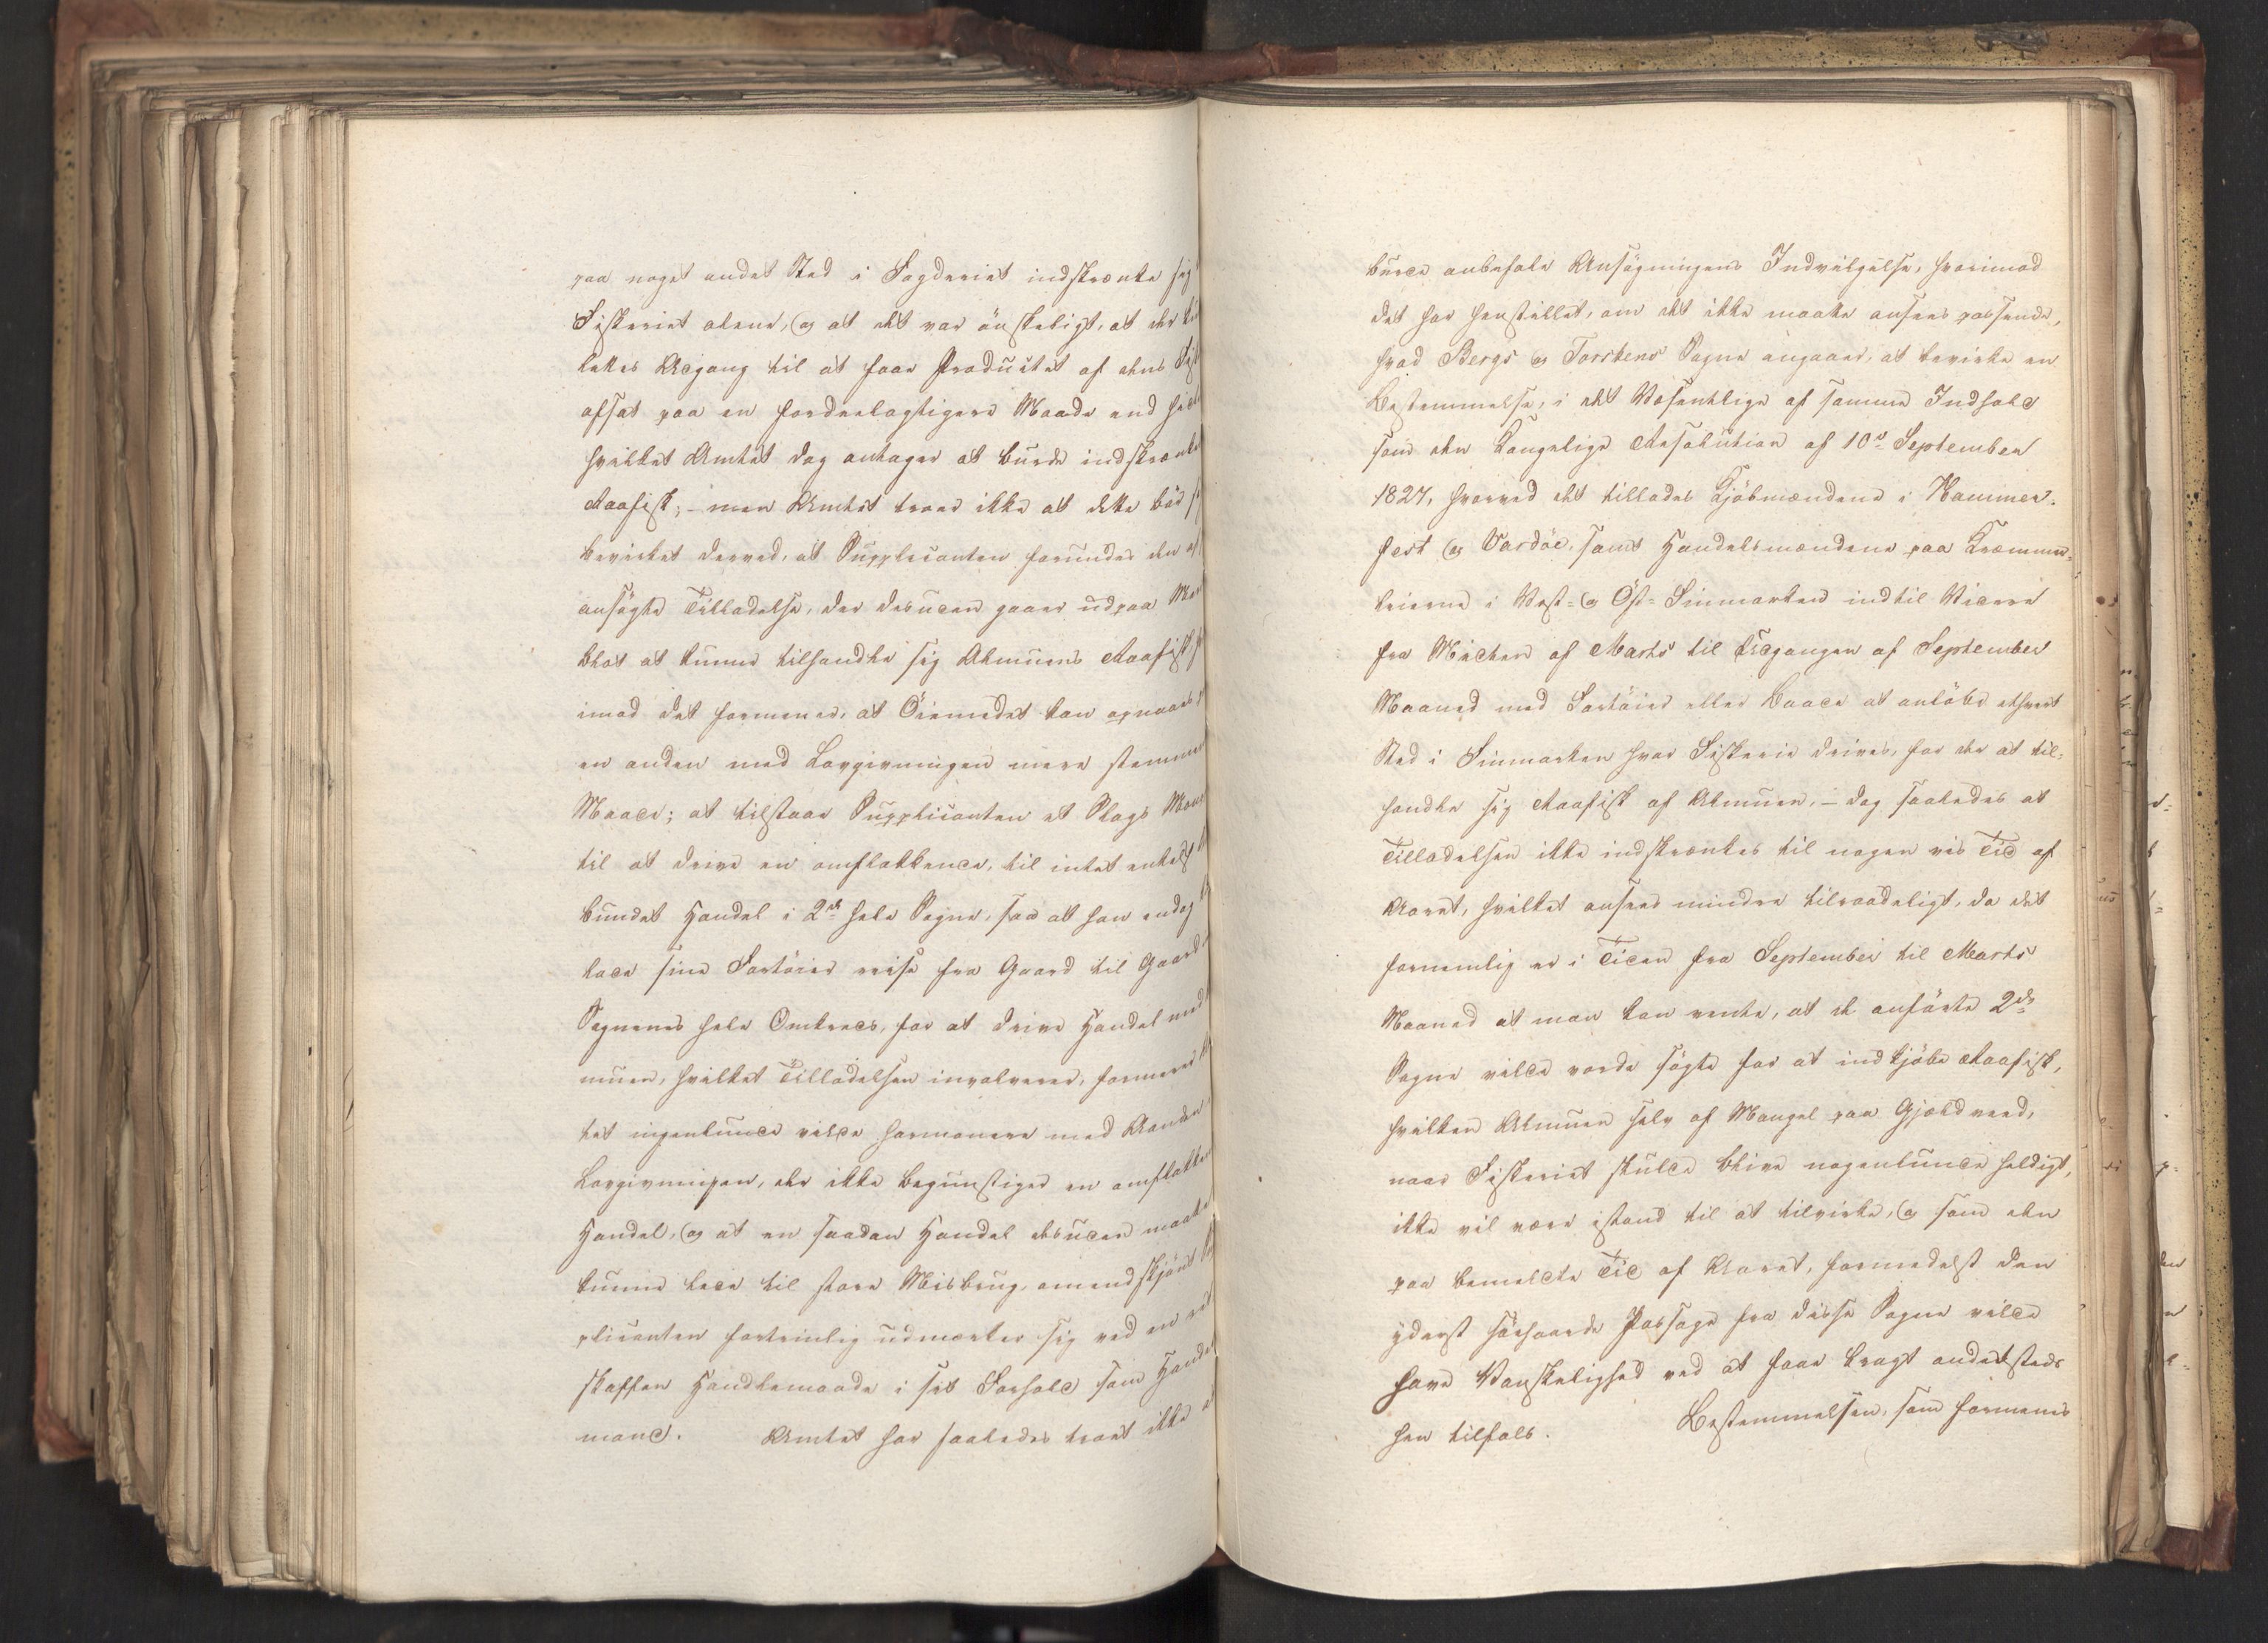 paa noget andet Sted i Fogderiet indskrænke sig
Fiskeriet alene, og at det var önskeligt, at der
lettes Adgang til at faae Productet af dens
afsat paa en fordeelagtigere Maade end
hvilket Amtet dog antager at burde
Raafisk; - men Amtet troer ikke at dette bör
bevirket derved, at Supplicanten forundes den
ansögte Tilladelse, der desuden gaaer ud paa
blot at kunne tilhandle sig Almuens Raafisk,
imod det formener, at Öiemedet kan opnaaes
en anden med Lovgivningen mere
Maade; at tilstaae Supplicanten et Slags
til at drive en omflakkende, til intet enkelt
bundet Handel i 2de hele Sogne, saa at han endog
lade sine Fartöier reise fra Gaard til Gaard
Sognenes hele Omkreds, for at drive Handel med
muen, hvilket Tilladelsen involverer, formener
tet ingenlunde vilde harmonere med Aanden
Lovgivningen, der ikke begunstiger en
Handel, og at en saadan Handel desuden maatte
kunne lede til store Misbrug, omendskjönt
plicanten fortrinlig udmærker sig ved en
skaffen Handlemaade i sit Forhold som
mand. Amtet har saaledes troet ikke
burde anbefale Ansögningens Indvilgelse, hvorimod
det har henstillet, om det ikke maatte ansees passende,
hvad Bergs og Torskens Sogne angaaer, at bevirke en
Bestemmelse, i det Væsentlige af samme Indhold
som den Kongelige Resolution af 10de September
1827, hvorved det tillades Kjöbmændene i Hammer-
fest og Vardöe, samt Handelsmændene paa Kræmmer-
leierne i Vest- og Öst-Finmarken indtil Videre
fra Midten af Marts til Udgangen af September
Maaned med Fartöier eller Baade at anlöbe ethvert
Sted i Finmarken hvor Fiskerie drives, for der at til-
handle sig Raafisk af Almuen, - dog saaledes at
Tilladelsen ikke indskrænkes til nogen vis Tid af
Aaret, hvilket ansees mindre tilraadeligt, da det
fornemlig er i Tiden fra September til Marts
Maaned at man kan vente, at de anförte 2de
Sogne vilde vorde sögte for at indkjöbe Raafisk,
hvilken Almuen selv af Mangel paa Gjældveed,
naar Fiskeriet skulde blive nogenlunde heldigt,
ikke vil være istand til at tilvirke, og som den
paa bemeldte Tid af Aaret, formedelst den
yderst farefulde Passage fra disse Sogne vilde
have Vanskelighed ved at faae bragt andetsteds
hen tilfals. Bestemmelsen, som formenes